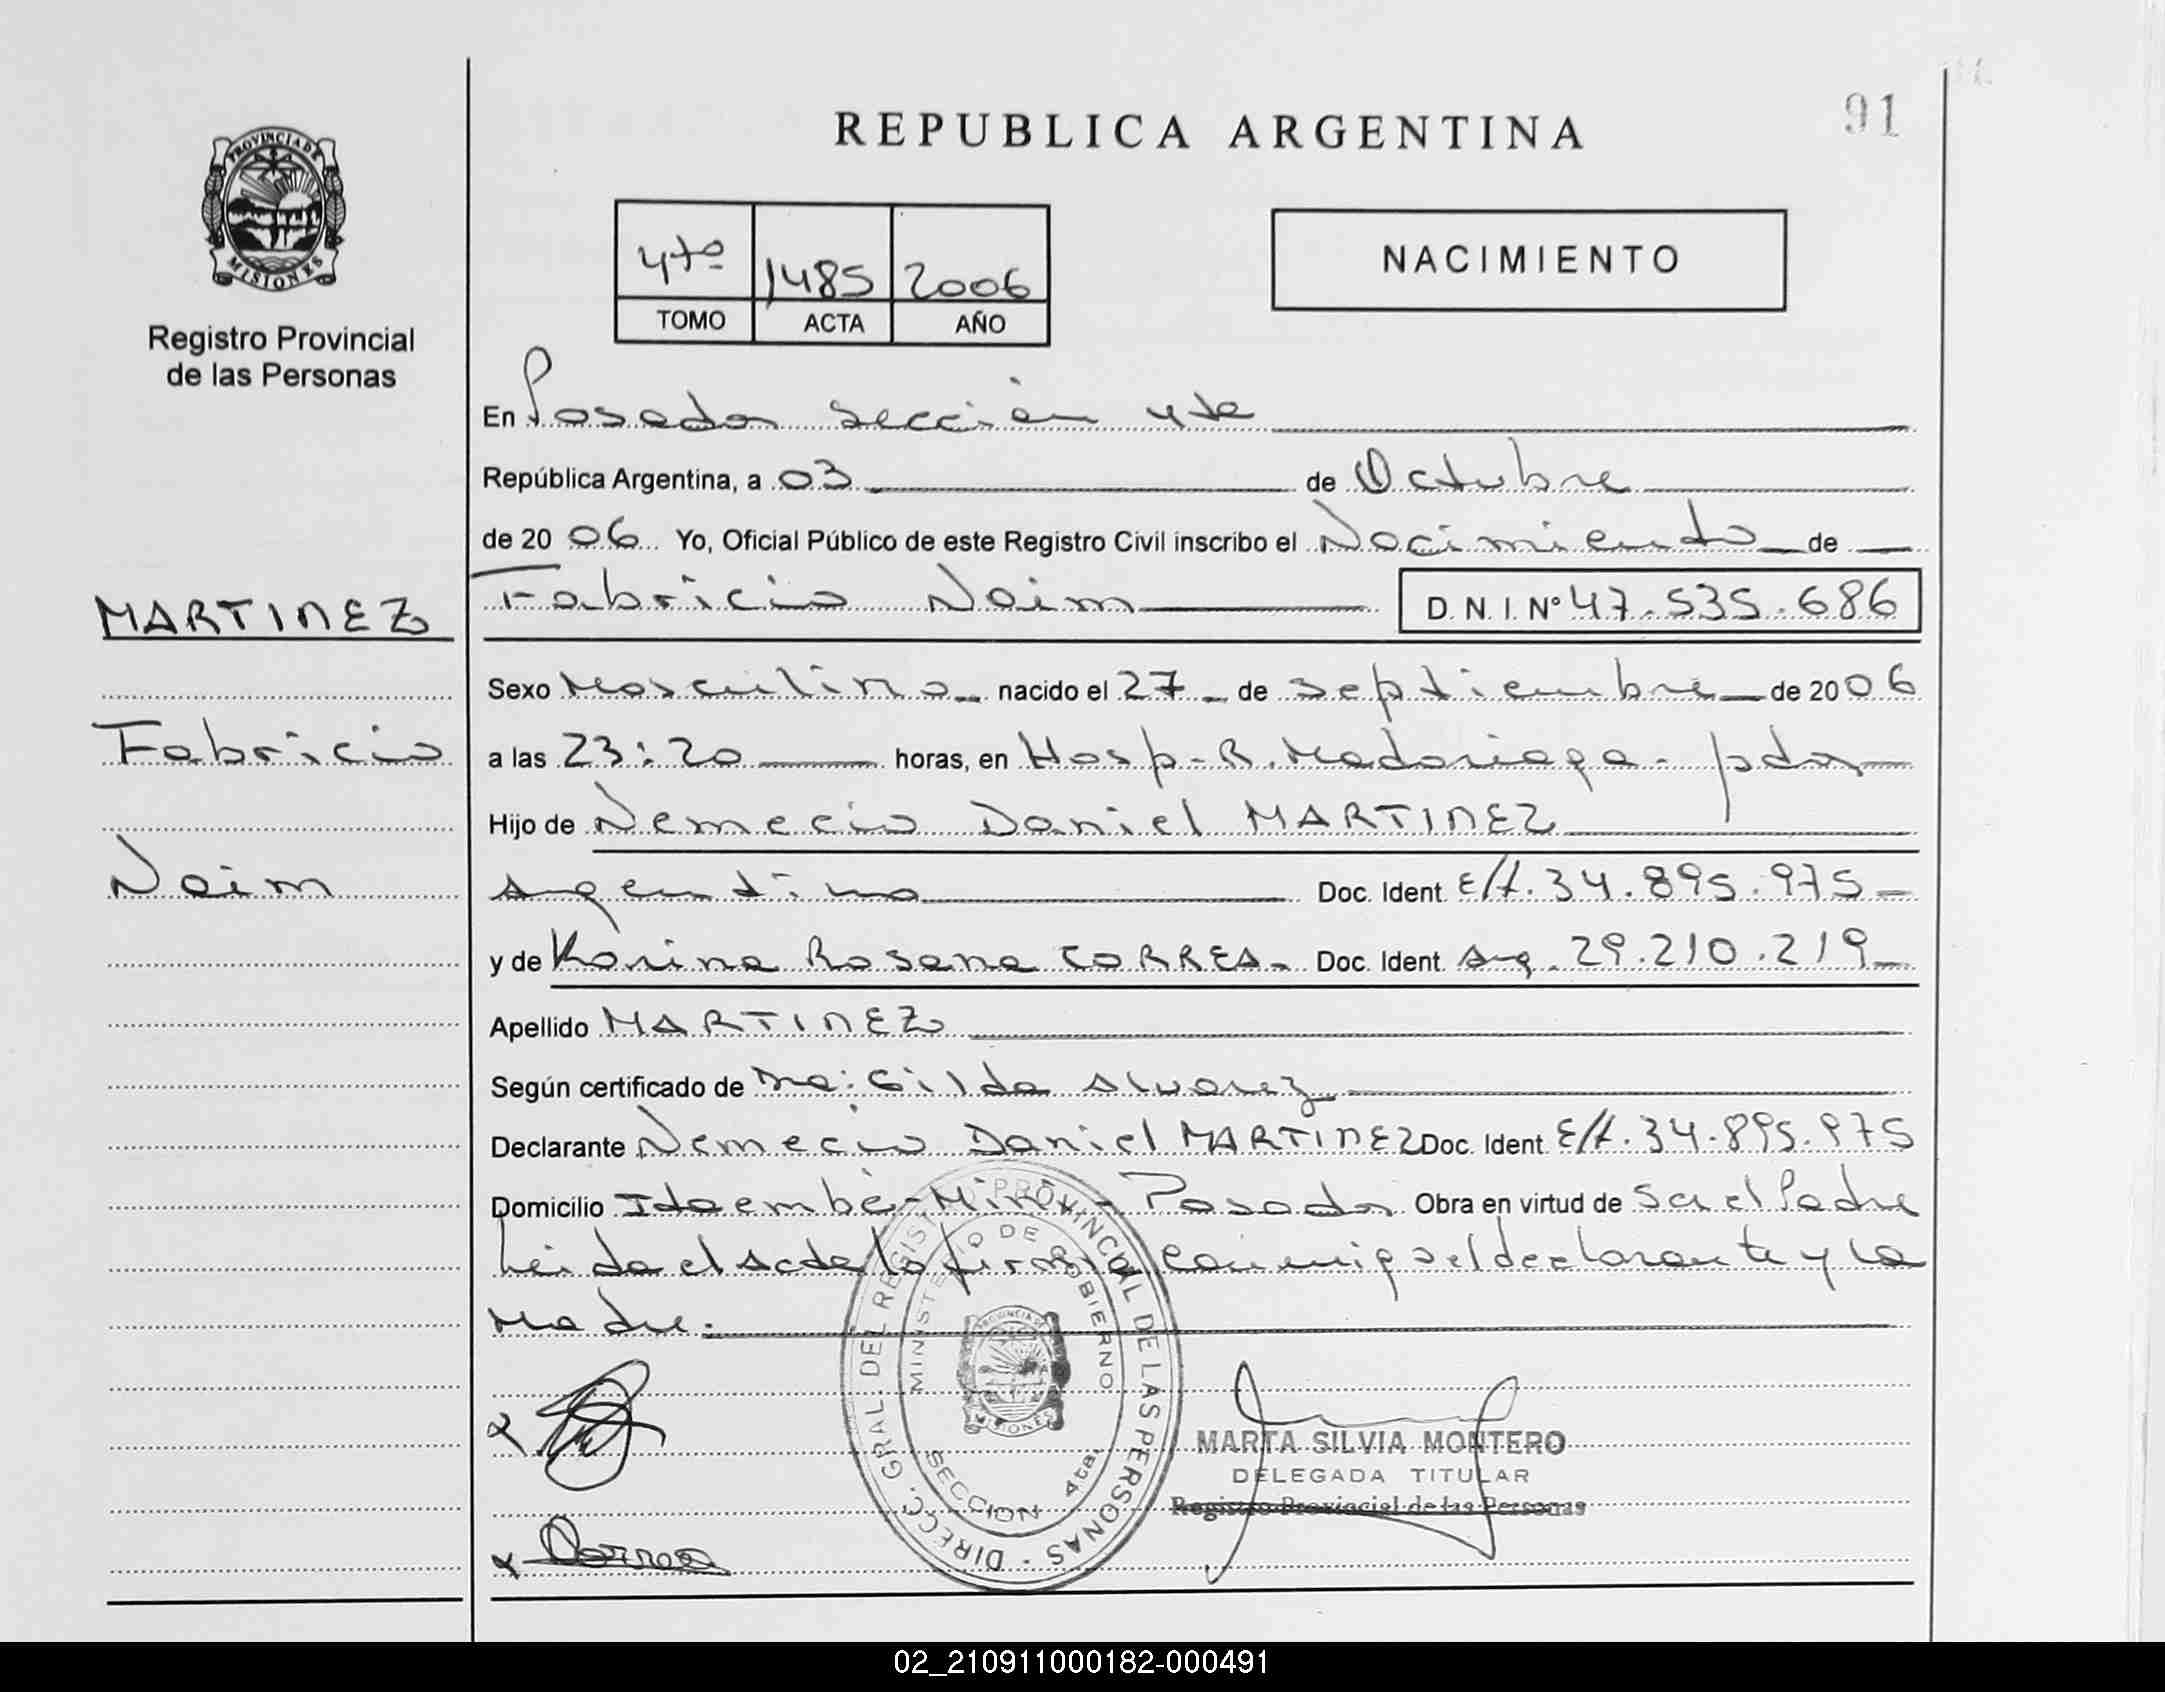 REPUBLICA ARGENTINA
91
PROVINCIA DE
MISIONES
Registro Provincial
de las Personas
4to 1485 2006
TOMO ACTA AÑO
NACIMIENTO
En Posadas sección 4ta
República Argentina, a 03 de Octubre
de 2006 Yo, Oficial Público de este Registro Civil inscribo el Nacimiento de
Fabricio Naim D. N. I. Nº 47.535.686
MARTINEZ
Fabricio
Naim
Sexo Masculino nacido el 27 de septiembre de 2006
a las 23:20 horas, en Hosp. R. Madariaga - pdas
Hijo de Nemecio Daniel MARTINEZ
Argentino Doc. Ident. E/t. 34.895.975
y de Karina Rosana CORREA Doc. Ident. Arg. 29.210.219
Apellido MARTINEZ
Según certificado de Ma: Gilda Alvarez
Declarante Nemecio Daniel MARTINEZ Doc. Ident. E/t. 34.895.975
Domicilio Itaembé - Miní - Posadas Obra en virtud de Ser el Padre
Leida el Acta la firma conmigo el declarante y la
Madre.
DIRECC. GRAL. DEL REGISTRO PROVINCIAL DE LAS PERSONAS
MINISTERIO DE GOBIERNO
PROVINCIA DE
MISIONES
SECCION 4ta.
MARTA SILVIA MONTERO
DELEGADA TITULAR
Registro Provincial de las Personas
Correa
02_210911000182-000491